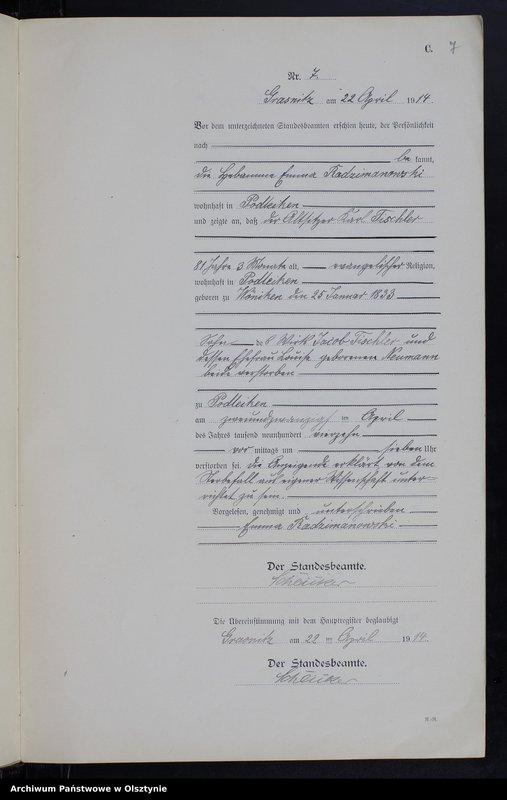 C. 7
Nr. 7.
Grasnitz am 22 April 1914.
Vor dem unterzeichneten Standesbeamten erschien heute, der Persönlichkeit
nach
be kannt,
die Hebamme Emma Radzimanowski
wohnhaft in Podleiken
und zeigte an, daß der Altsitzer Karl Tischler
81 Jahre 3 Monate alt, evangelischer Religion,
wohnhaft in Podleiken
geboren zu Wöniken den 25 Januar 1833
Sohn des Wirt Jacob Tischler und
dessen Ehefrau Louise geborenen Neumann
beide verstorben
zu Podleiken
am zweiundzwanzigsten April
des Jahres tausend neunhundert vierzehn
vor mittags um sieben Uhr
verstorben sei. die Anzeigende erklärt, von dem
Sterbefall aus eigener Wissenschaft unter-
richtet zu sein.
Vorgelesen, genehmigt und unterschrieben
Emma Radzimanowski
Der Standesbeamte.
Die Übereinstimmung mit dem Hauptregister beglaubigt
Grasnitz am 22 ten April 1914.
Der Standesbeamte.
Archiwum Państwowe w Olsztynie